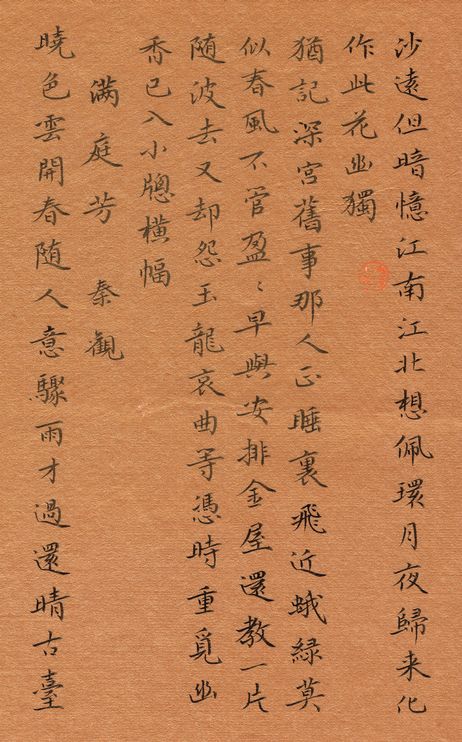 沙遠但暗憶江南江北想佩環月夜歸来化
作此花幽獨
猶記深宮舊事那人正睡裏飛近蛾綠莫
似春風不管盈〻早與安排金屋還教一片
随波去又却怨玉龍哀曲等憑時重覓幽
香已入小牕橫幅
滿庭芳 秦觀
曉色雲開春随人意驟雨才過還晴古臺